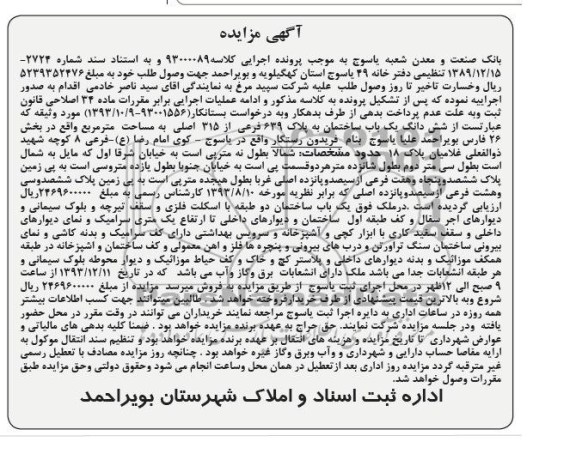 آگهی مزایده
بانک صنعت و معدن شعبه یاسوج به موجب پرونده اجرایی کلاسه۹۳۰۰۰۰۸۹ و به استناد سند شماره ۲۷۲۴-
۱۳۸۹/۱۲/۱۵ تنظیمی دفتر خانه ۴۹ یاسوج استان کهگیلویه و بویراحمد جهت وصول طلب خود به مبلغ۵۲۳۹۳۵۲۴۷۶
ریال وخسارت تاخیر تا روز وصول طلب علیه شرکت سپید مرغ به نمایندگی اقای سید ناصر خادمی اقدام به صدور
اجراییه نموده که پس از تشکیل پرونده به کلاسه مذکور و ادامه عملیات اجرایی برابر مقررات ماده ۳۴ اصلاحی قانون
ثبت وبه علت عدم پرداخت بدهی از طرف بدهکار وبه درخواست بستانکار(۹۳۰۰۱۵۵۶-۱۳۹۳/۱۰/۹) مورد وثیقه که
عبارتست از شش دانگ یک باب ساختمان به پلاک ۶۳۹ فرعی از ۳۱۵ اصلی به مساحت مترمربع واقع در بخش
۲۶ فارس بویراحمد علیا یاسوج بنام فریدون رستگار واقع در یاسوج - کوی امام رضا (ع)-فرعی ۸ کوچه شهید
ذوالفعلی غلامیان پلاک۱۸ حدود مشخصات: شمالا بطول نه مترپی است به خیابان شرقا اول که مایل به شمال
است بطول سی متر دوم بطول شانزده مترهردوقسمت پی است به خیابان جنوبا بطول یازده متروسی است به پی زمین
پلاک ششصدوپنجاه وهفت فرعی ازسیصدوپانزده اصلی غربا بطول هیجده مترپی است به پی زمین پلاک ششصدوسی
وهشت فرعی ازسیصدوپانزده اصلی که برابر نظریه مورخه ۱۳۹۳/۸/۱۰ کارشناس رسمی به مبلغ ۲۴۶۹۶۰۰۰۰۰ریال
ارزیابی گردیده است .درملک فوق یک باب ساختمان دو طبقه با اسکلت فلزی و سقف تیرچه و بلوک سیمانی و
دیوارهای اجر سفال و کف طبقه اول ساختمان و دیوارهای داخلی تا ارتفاع یک متری سرامیک و نمای دیوارهای
داخلی و سقف سفید کاری با ابزار گچی و آشپزخانه و سرویس بهداشتی دارای کف سرامیک و بدنه کاشی و نمای
بیرونی ساختمان سنگ تراورتن و درب های بیرونی و پنجره ها فلز و اهن معمولی و کف ساختمان و اشپزخانه در طبقه
همکف موزائیک و بدنه دیوارهای داخلی و پلاستر گچ و خاک و کف حیاط موزائیک و دیوار محوطه بلوک سیمانی و
هر طبقه انشعابات جدا می باشد ملک دارای انشعابات برق وگاز و آب می باشد که در تاریخ ۱۳۹۳/۱۲/۱۱ از ساعت
۹ صبح الی ۱۲ظهر در محل اجرای ثبت یاسوج از طریق مزایده به فروش میرسد مزایده از مبلغ ۲۴۶۹۶۰۰۰۰۰ ریال
شروع وبه بالاترین قیمت پیشنهادی از طرف خریدارفروخته خواهد شد. طالبین میتوانند جهت کسب اطلاعات بیشتر
همه روزه در ساعات اداری به دایره اجرا ثبت یاسوج مراجعه نمایند خریداران می توانند در وقت مقرر در محل حضور
یافته ودر جلسه مزایده شرکت نمایند. حق حراج به عهده برنده مزایده خواهد بود . ضمنا کلیه بدهی های مالیاتی و
عوارض شهرداری تا تاریخ مزایده و هزینه های انتقال بر عهده برنده مزایده خواهد بود و تنظیم سند انتقال موکول به
ارایه مفاصا حساب دارایی و شهرداری و وآب وبرق وگاز غیره خواهد بود . چنانچه روز مزایده مصادف با تعطیل رسمی
غیر مترقبه گردد مزایده روز اداری بعد ازتعطیل در همان محل وساعت انجام می شود وحقوق دولتی وحق مزایده طبق
مقررات وصول خواهد شد.
اداره ثبت اسناد و املاک شهرستان بویراحمد